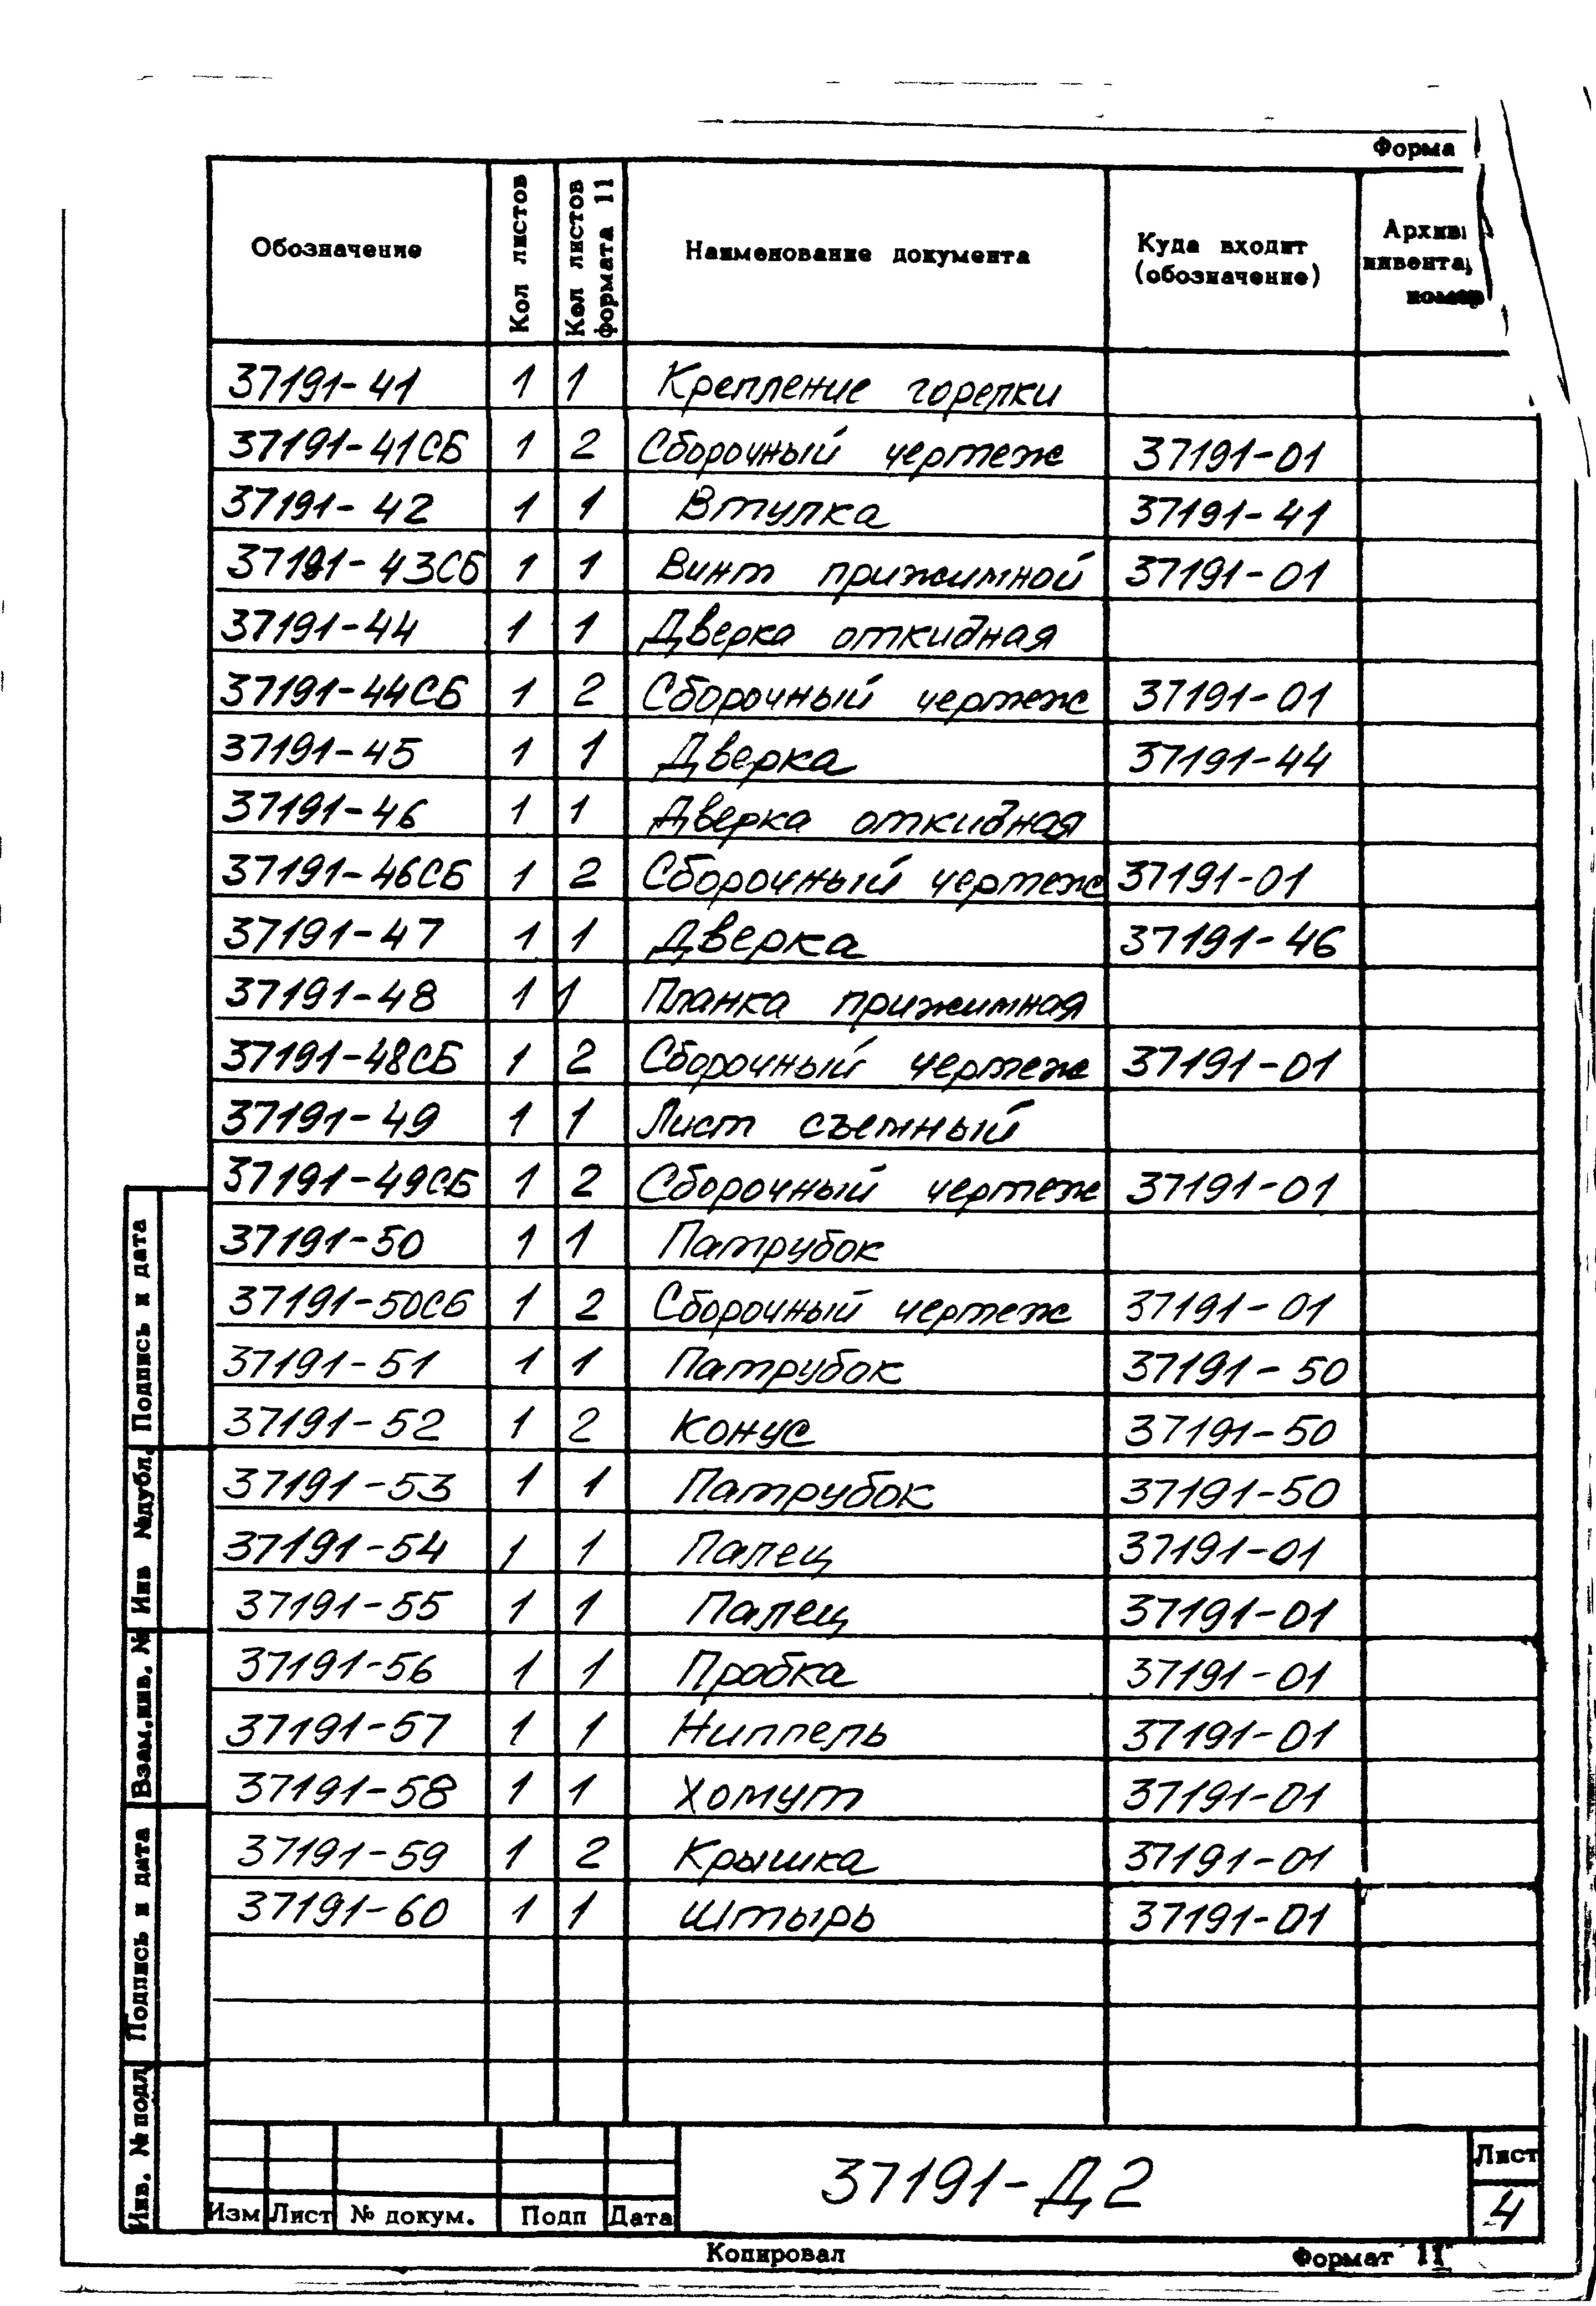 Форма
Обозначение
Кол листов
Кол листов формата 11
Наименование документа
Куда входит (обозначение)
Архив
инвента
номер
37191-41 1 1 Крепление горелки
37191-41СБ 1 2 Сборочный чертеж 37191-01
37191-42 1 1 Втулка 37191-41
37191-43СБ 1 1 Винт прижимной 37191-01
37191-44 1 1 Дверка откидная
37191-44СБ 1 2 Сборочный чертеж 37191-01
37191-45 1 1 Дверка 37191-44
37191-46 1 1 Дверка откидная
37191-46СБ 1 2 Сборочный чертеж 37191-01
37191-47 1 1 Дверка 37191-46
37191-48 1 1 Планка прижимная
37191-48СБ 1 2 Сборочный чертеж 37191-01
37191-49 1 1 Лист съемный
37191-49СБ 1 2 Сборочный чертеж 37191-01
37191-50 1 1 Патрубок
37191-50СБ 1 2 Сборочный чертеж 37191-01
37191-51 1 1 Патрубок 37191-50
37191-52 1 2 Конус 37191-50
37191-53 1 1 Патрубок 37191-50
37191-54 1 1 Палец 37191-01
37191-55 1 1 Палец 37191-01
37191-56 1 1 Пробка 37191-01
37191-57 1 1 Ниппель 37191-01
37191-58 1 1 Хомут 37191-01
37191-59 1 2 Крышка 37191-01
37191-60 1 1 Штырь 37191-01
Подпись и дата
Инв №дубл.
Взам.инв. №
Подпись и дата
Инв. №подл
Изм Лист № докум. Подп Дата
37191-Д2
Лист
4
Копировал
Формат 11